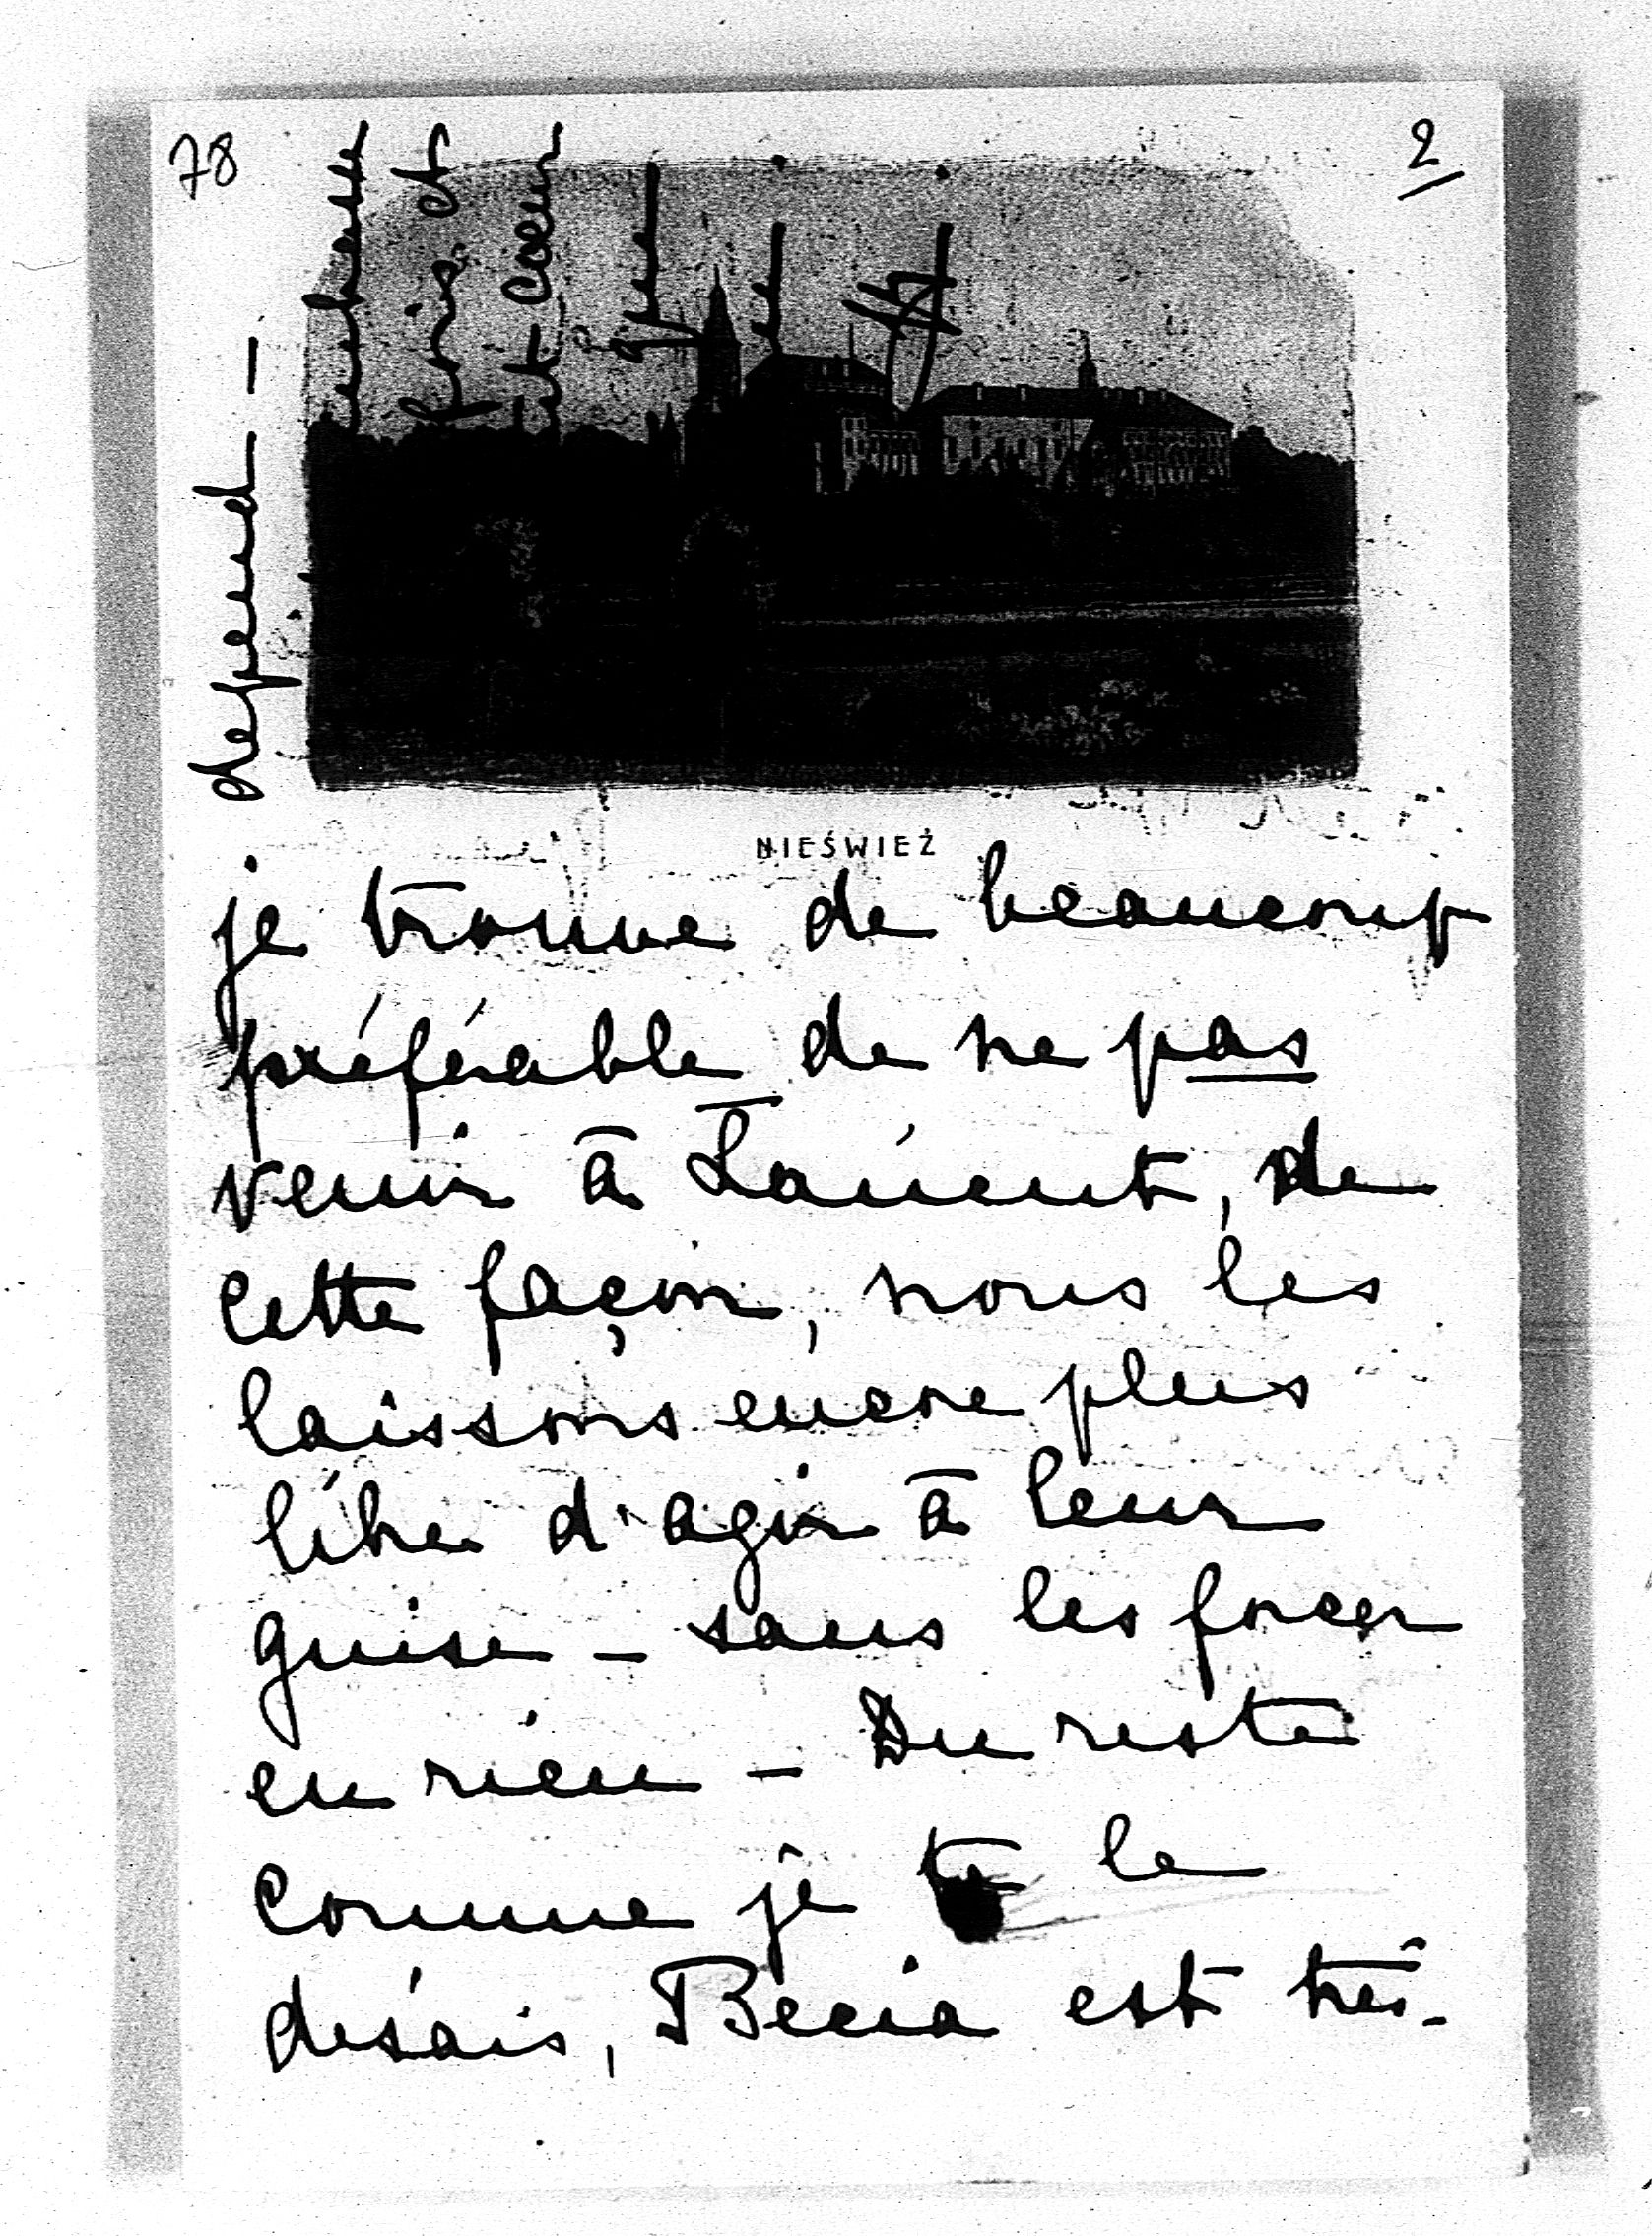 78
2
depend —
coeur
NIEŚWIEŻ
je trouve de beaucoup
préférable de ne pas
venir à Łańcut, de
cette façon, nous les
laissons encore plus
libre d'agir à leur
guise — sans les forcer
en rien — Du reste
comme je te le
désais, Becia est très-